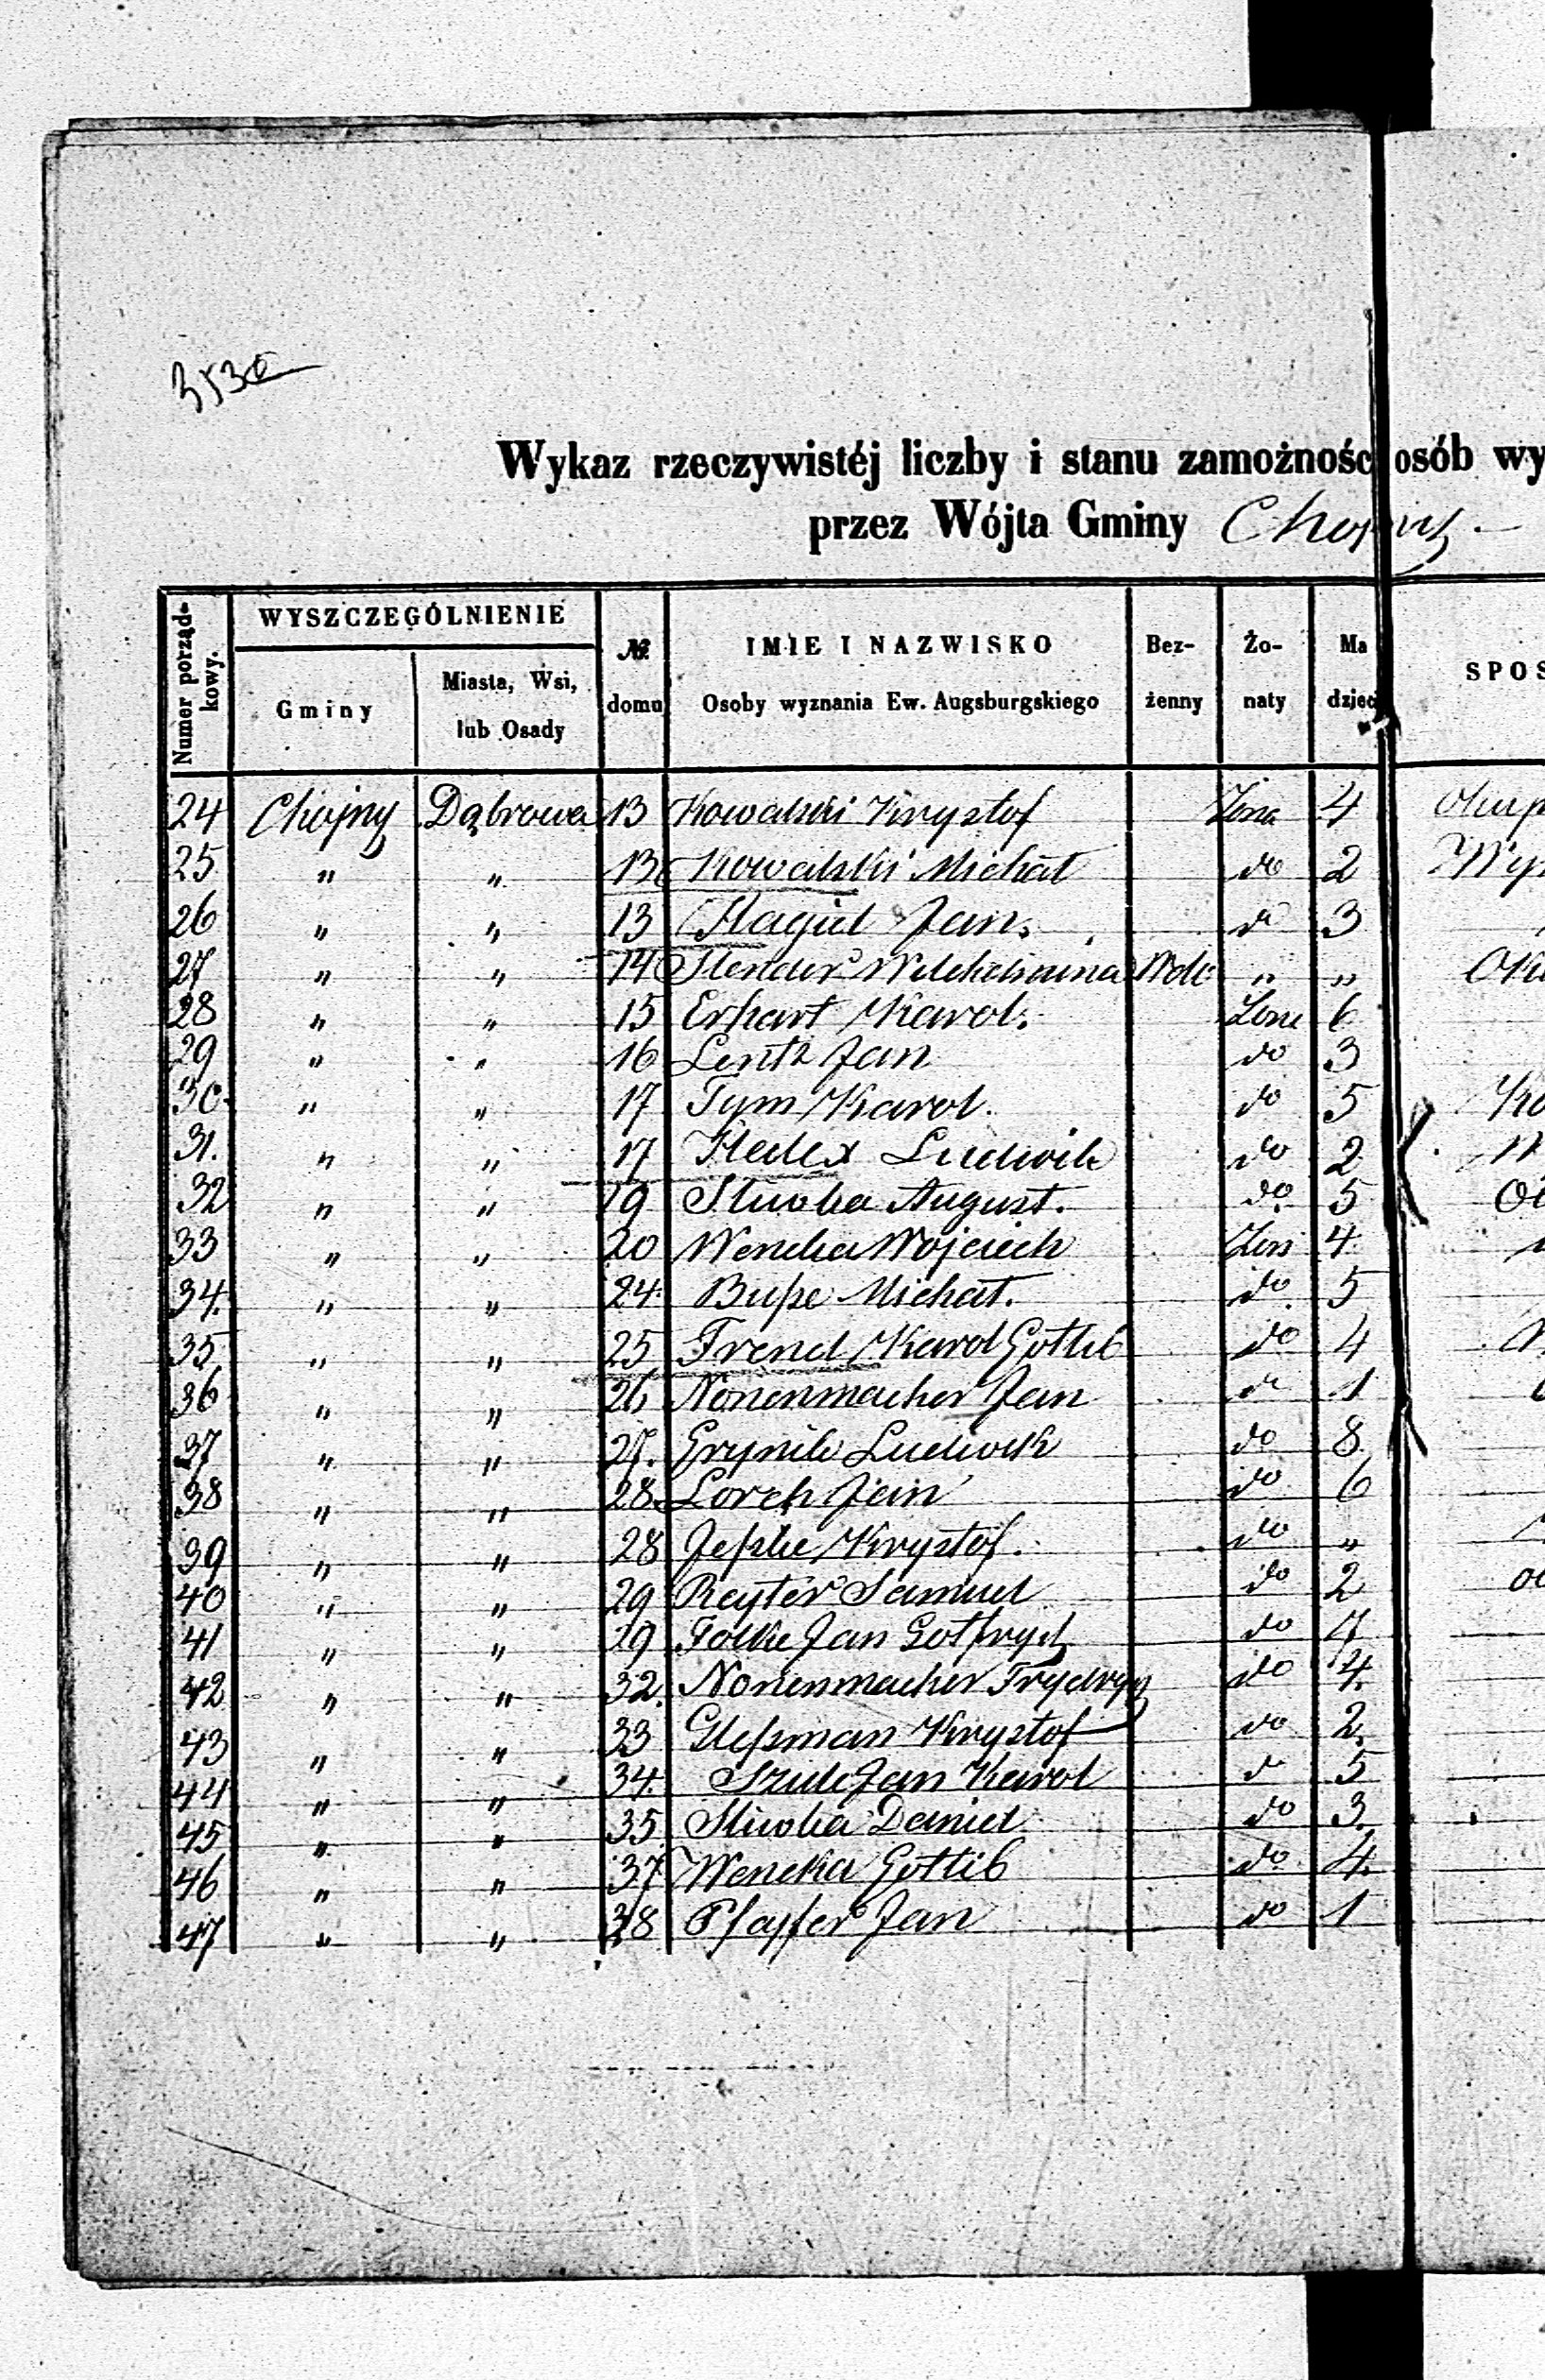 3530
Wykaz rzeczywistéj liczby i stanu zamożnośc osób wy
przez Wójta Gminy Chojny
Numer porząd-kowy. WYSZCZEGÓLNIENIE № domu IMIE I NAZWISKO Bez- Żo- Ma SPOS
Gminy Miasta, Wsi, lub Osady Osoby wyznania Ew. Augsburgskiego żenny naty dzieci
24 Chojny Dąbrowa 13 Kowalski Krystof Żona 4
25 " " 13 Kowalski Michał do 2
26 " " 13 Hagiel Jan. do 3
27 " " 14 " "
28 " " 15 Erhart Karol. Żona 6
29 " " 16 Lentz Jan do 3
30 " " 17 Tym Karol. do 5
31. " " 17 Ludwik do 2
32 " " 19 August. do 5
33 " " 20 Wencka Wojciech Żon 4
34. " " 24 Buße Michał. do 5
35 " " 25 Frend Karol Gotlib do 4
36 " " 26 Nonenmacher Jan do 1
37 " " 27. Grynik Ludwik do 8
38 " " 28. Lorch Jan do 6
39 " " 28 Jeßke Krystof. do "
40 " " 29 Reyter Samuel do 2
41 " " 29 Folke Jan Gotfryd do 7
42 " " 32. Nonenmacher Frydryg do 4.
43 " " 33 Gleßman Krystof do 2.
44 " " 34. Szulc Jan Karol do 5
45 " " 35 Daniel do 3.
46 " " 37 Wencka Gotlib do 4.
47 " " 38 Pfayfer Jan do 1